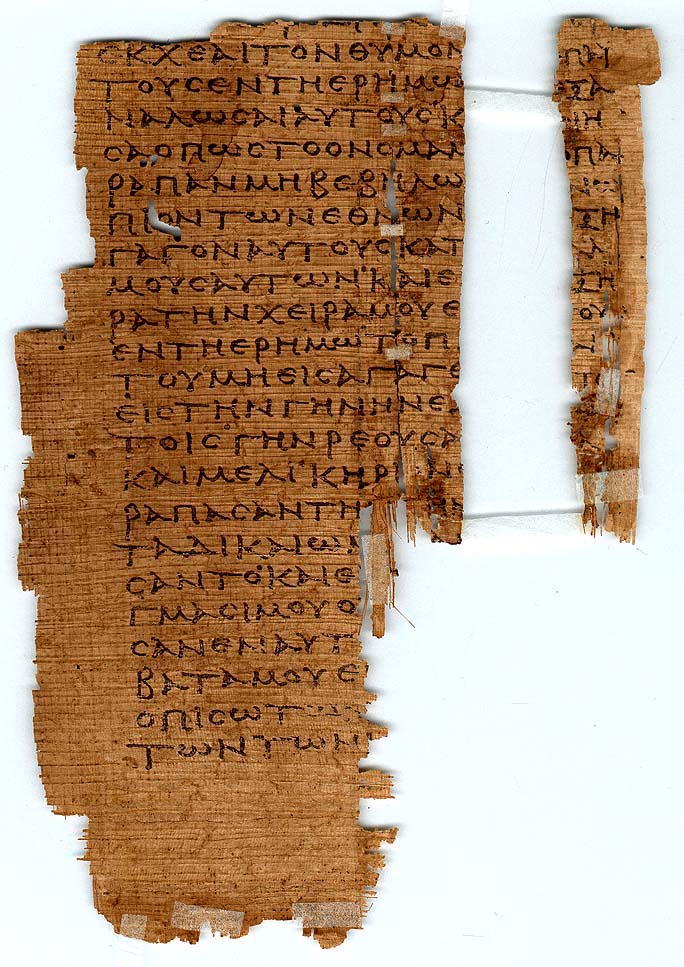 ΕΚΧΕΑΙΤΟΝΘΥΜΟΝ
ΤΟΥϹΕΝΤΗΕΡΗΜΩ
ΝΑΛΩϹΑΙΑΥΤΟΥϹΚ
ϹΑΟΠΩϹΤΟΟΝΟΜΑΜ
ΡΑΠΑΝΜΗΒΕΒΗΛΩ
ΠΙΟΝΤΩΝΕΘΝΩΝ
ΓΑΓΟΝΑΥΤΟΥϹΚΑΤ
ΜΟΥϹΑΥΤΩΝΚΑΙΕ
ΡΑΤΗΝΧΕΙΡΑΜΟΥΕ
ΕΝΤΗΕΡΗΜΩΤΟΠ
ΤΟΥΜΗΕΙϹΑΓΑΓΕ
ΕΙϹΤΗΝΓΗΝΗΝΕ
ΤΟΙϹΓΗΝΡΕΟΥϹΑ
ΚΑΙΜΕΛΙΚΗΡΙ
ΡΑΠΑϹΑΝΤΗ
ΤΑΔΙΚΑΙΩΜ
ϹΑΝΤΟΚΑΙΕ
ΓΜΑϹΙΜΟΥΟ
ϹΑΝΕΝΑΥΤ
ΒΑΤΑΜΟΥΕ
ΟΠΙϹΩΤΩ
ΤΩΝΤΩΝ
ΠΗ
ϹΑ
ΙΗ
ΠΑ
ϹΗ
Α
ϹΗ
ΟΥ